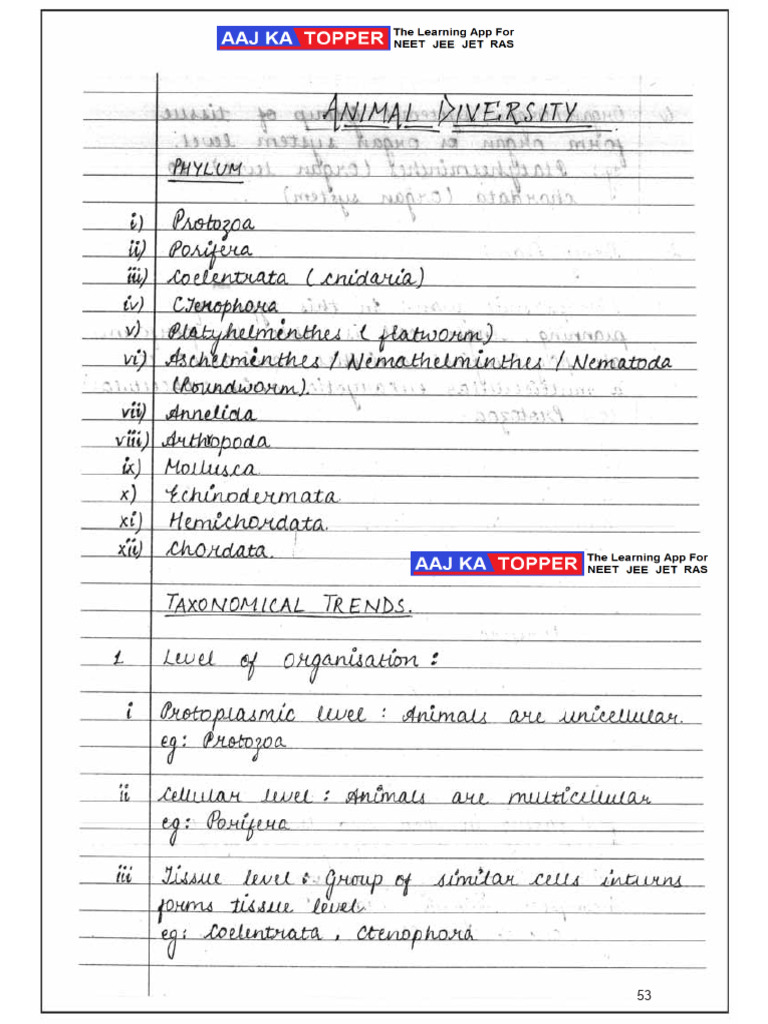 AAJ KA TOPPER The Learning App For
NEET JEE JET RAS
ANIMAL DIVERSITY
PHYLUM
i) Protozoa
ii) Porifera
iii) Coelentrata (cnidaria)
iv) Ctenophora
v) Platyhelminthes (flatworm)
vi) Aschelminthes / Nemathelminthes / Nematoda
(Roundworm).
vii) Annelida
viii) Arthropoda
ix) Mollusca
x) Echinodermata
xi) Hemichordata.
xii) Chordata.
AAJ KA TOPPER The Learning App For
NEET JEE JET RAS
TAXONOMICAL TRENDS.
1 Level of organisation :
i Protoplasmic level : Animals are unicellular.
eg: Protozoa
ii Cellular level : Animals are multicellular
eg: Porifera
iii Tissue level : Group of similar cells inturns
forms tissue level
eg: Coelentrata , Ctenophora
53